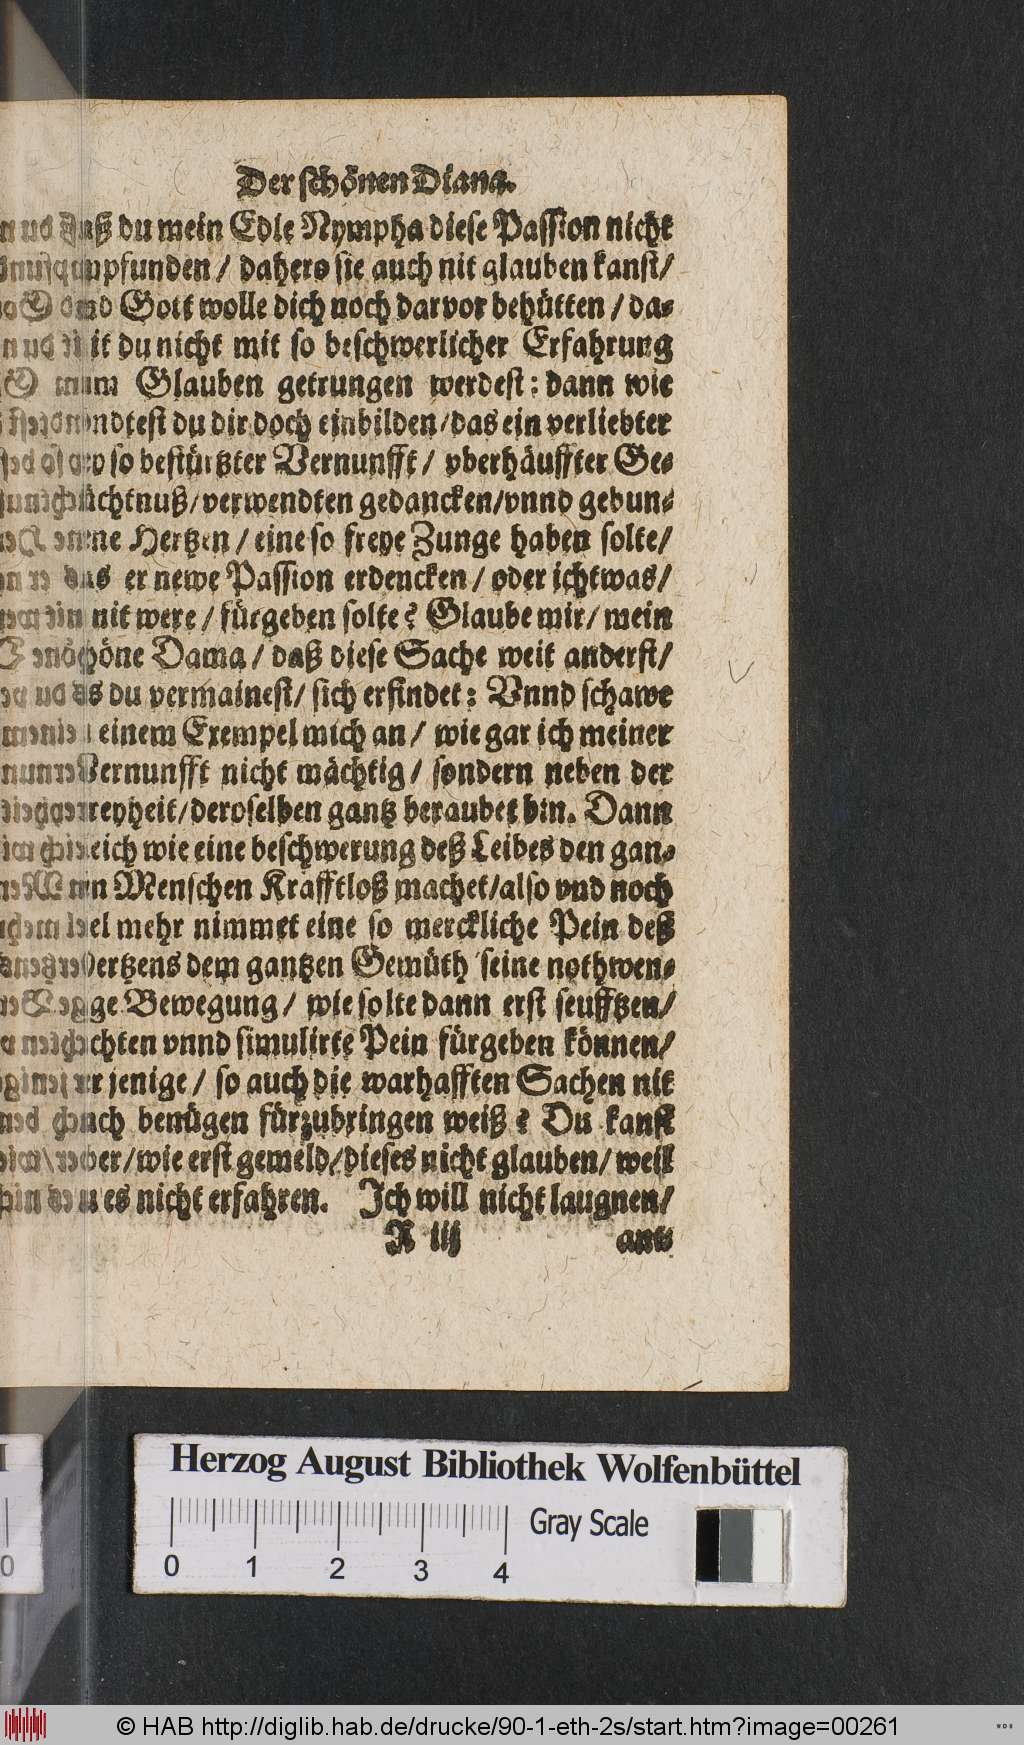 Der schönen Diana.
daß du mein Edle Nympha diese Passion nicht
empfunden / dahero sie auch nit glauben kanst /
vnd Gott wolle dich noch darvor behütten / da-
mit du nicht mit so beschwerlicher Erfahrung
zum Glauben getrungen werdest: dann wie
köndtest du dir doch einbilden / das ein verliebter
bey so bestürtzter Vernunfft / vberhäuffter Ge-
dächtnuß / verwendten gedancken / vnnd gebun-
dene Hertzen / eine so freye Zunge haben solte /
das er newe Passion erdencken / oder ichtwas /
nit were / fürgeben solte? Glaube mir / mein
schöne Dama / daß diese Sache weit anderst /
als du vermainest / sich erfindet: Vnnd schawe
einem Exempel mich an / wie gar ich meiner
Vernunfft nicht mächtig / sondern neben der
Freyheit / deroselben gantz beraubet bin. Dann
gleich wie eine beschwerung deß Leibes den gan-
tzen Menschen Krafftloß machet / also vnd noch
viel mehr nimmet eine so merckliche Pein deß
Hertzens dem gantzen Gemüth seine nothwen-
dige Bewegung / wie solte dann erst seufftzen /
chten vnnd simulirte Pein fürgeben können /
der jenige / so auch die warhafften Sachen nit
nach benügen fürzubringen weiß? Du kanst
aber / wie erst gemeld / dieses nicht glauben / weil
du es nicht erfahren. Ich will nicht laugnen /
R iij ant-
Herzog August Bibliothek Wolfenbüttel
Gray Scale
0 0 1 2 3 4
© HAB http://diglib.hab.de/drucke/90-1-eth-2s/start.htm?image=00261